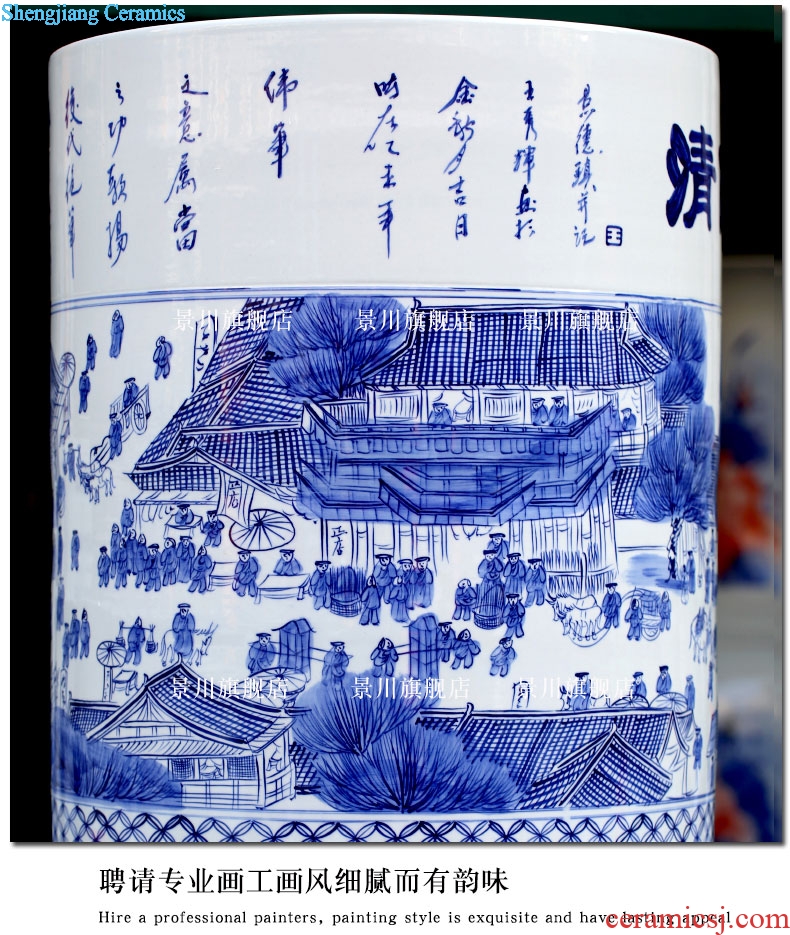 Shengjiang Ceramics
清
景德鎮并记
王秀輝画於
金秋月吉日
時在乙未年
伟筆
文意属當
之功歌揚
後代
王
景川旗舰店 景川旗舰店 景川旗舰店
正店
正店
景川旗舰店 景川旗舰店 景川旗舰店
聘请专业画工画风细腻而有韵味
Hire a professional painters, painting style is exquisite and have lasting appeal
ceramicsj.com